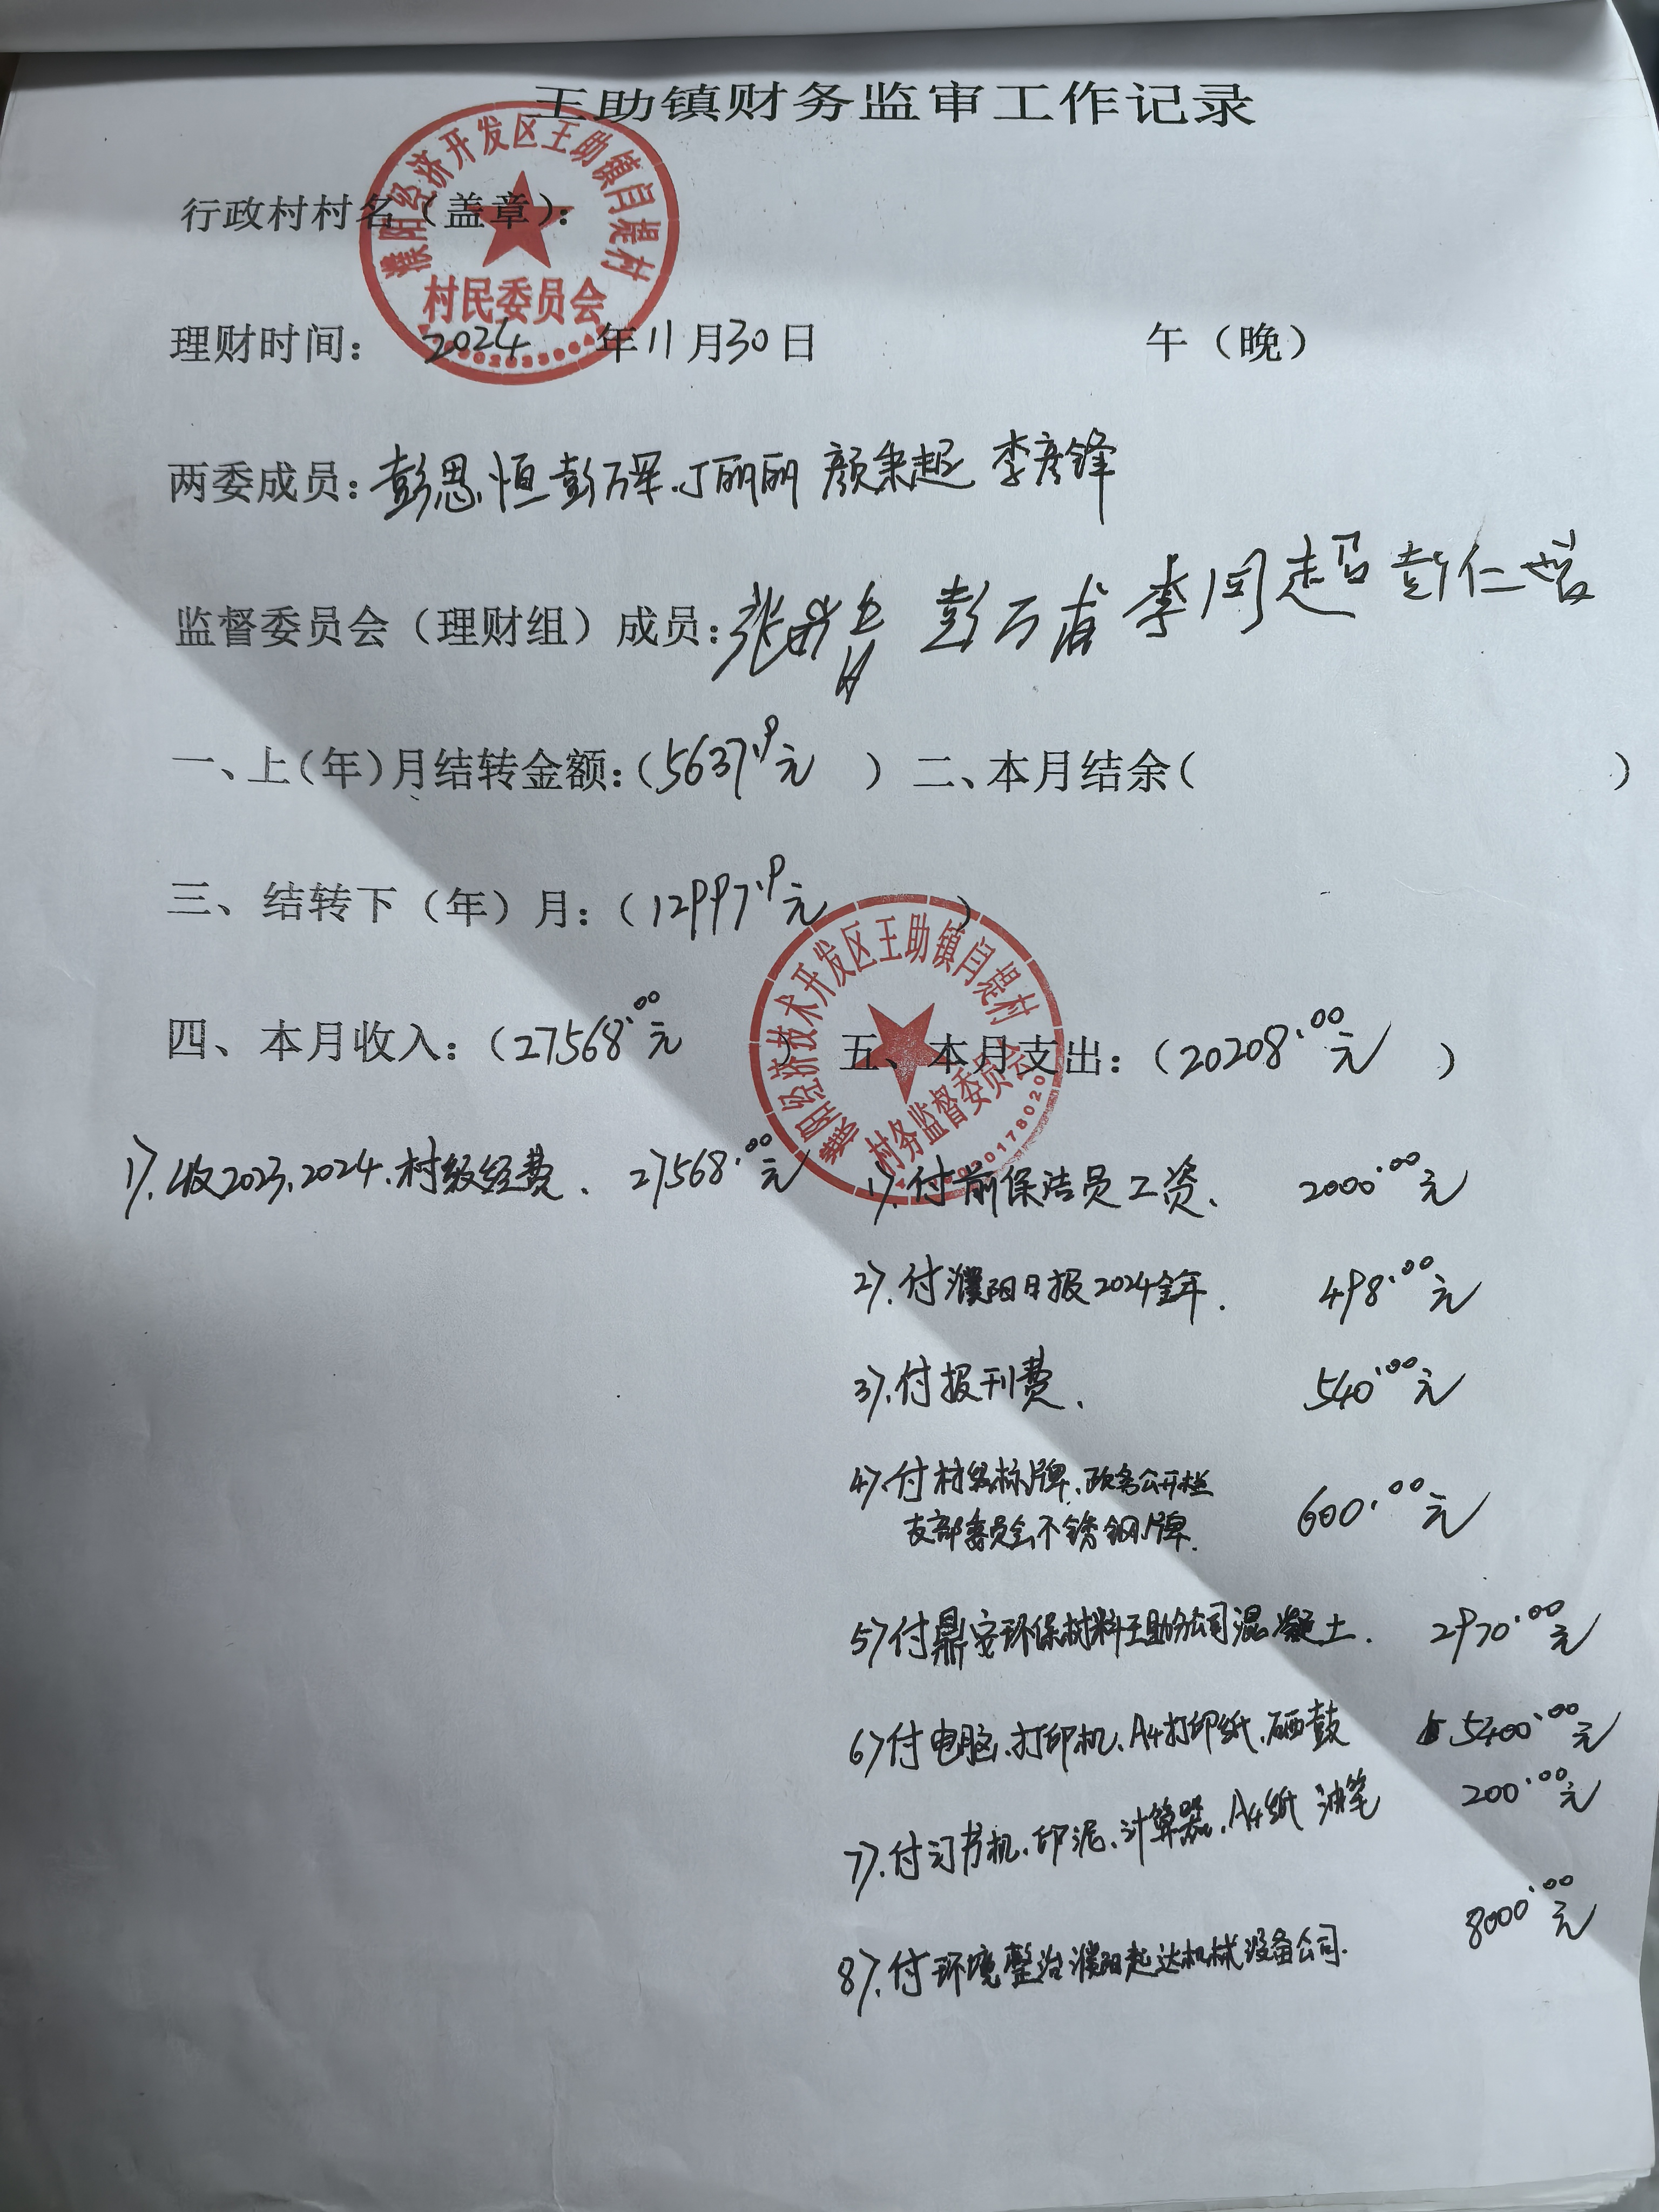 王助镇财务监审工作记录
濮阳经济开发区王助镇闫堤村
行政村村名（盖章）：
村民委员会
理财时间： 2024 年11月30日 午（晚）
两委成员：彭思恒 彭万军 丁丽丽 颜秉起 李彦锋
监督委员会（理财组）成员：张 彭万 李同超 彭仁
一、上（年）月结转金额：（5637.9元 ） 二、本月结余（ ）
三、结转下（年）月：（12997.9元 ）
濮阳经济技术开发区王助镇闫堤村
四、本月收入：（27568.00元 ） 五、本月支出：（20208.00元 ）
村务监督委员会
1).收2023.2024.村级经费. 27568.00元 1).付前保洁员工资. 2000.00元
2).付濮阳日报2024全年. 498.00元
3).付报刊费. 540.00元
4).付村名标牌.政务公开栏
支部委员会不锈钢牌. 600.00元
5)付鼎安环保材料王助分公司混凝土. 2970.00元
6)付电脑.打印机.A4打印纸.硒鼓 5400.00元
7).付订书机.印泥.计算器.A4纸 油笔 200.00元
8).付环境整治濮阳起达机械设备公司. 8000.00元